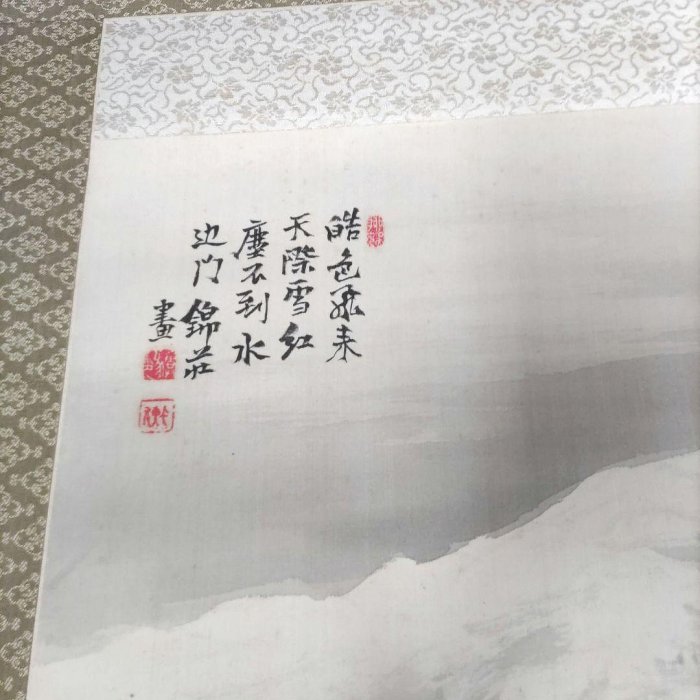 皓色飛来
天際雪紅
塵不到水
边门錦莊
畫